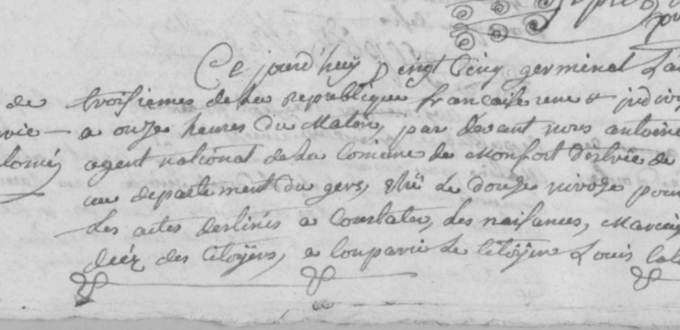 Ce jourd'huy vingt Cinq germinal L'an
de troisiemes de La republique francaise une & indivi
a onze heures du Matin, par devant nous antoine
agent national de La Comune de Monfort district de
au departement du gers, élu Le douze nivose pour
Les actes destinés a Constater, Les naissances, Mariag
décéz des Citoÿens, a Comparu Le Citoÿen Louis